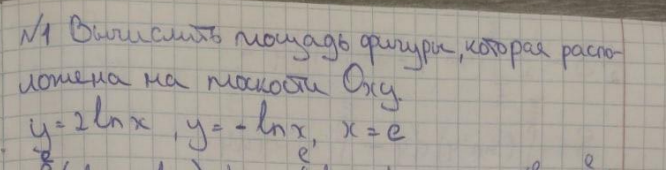 №1 Вычислить площадь фигуры, которая распо-
ложена на плоскости Oxy.
y = 2 ln x, y = - ln x, x = e